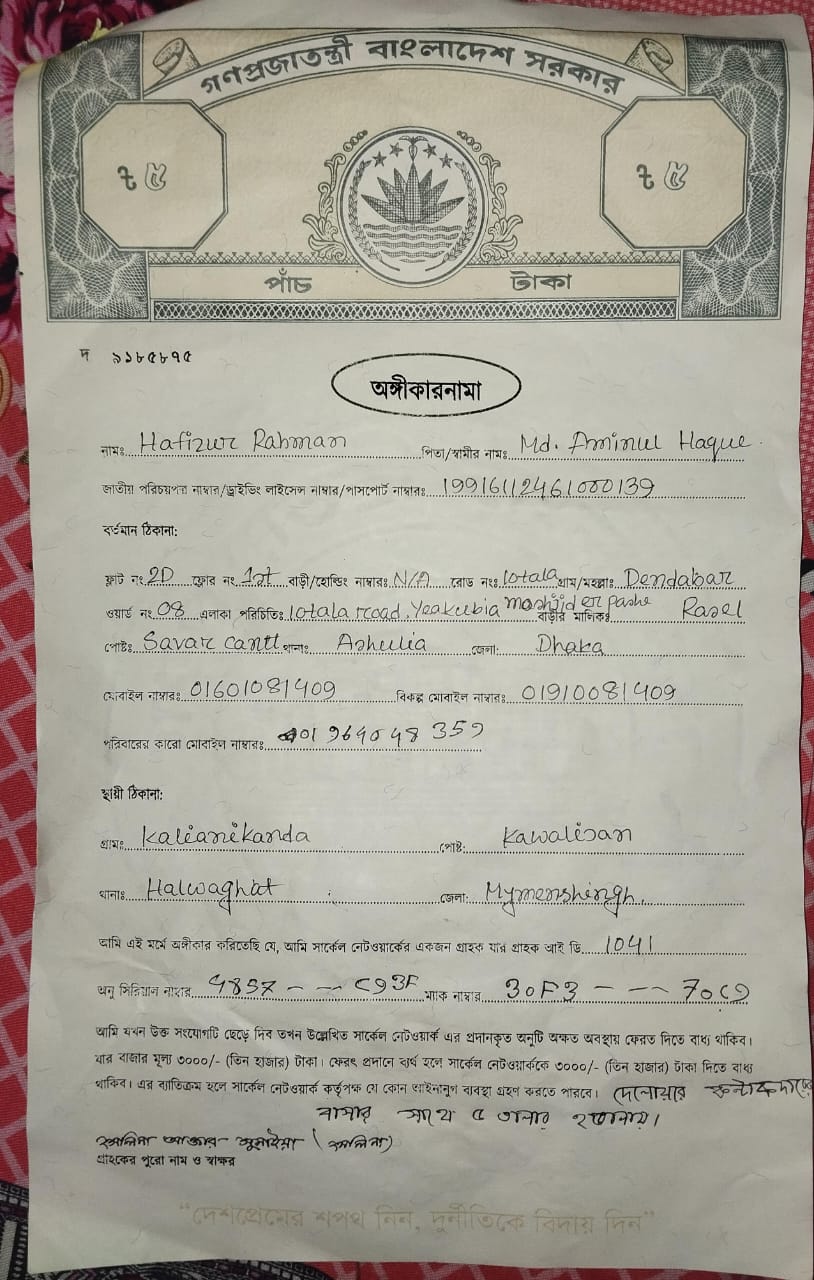 গণপ্রজাতন্ত্রী বাংলাদেশ সরকার
৳ ৫ ৳ ৫
পাঁচ টাকা
দ ৯১৮৫৮৭৫
অঙ্গীকারনামা
নামঃ Hafizur Rahman পিতা/স্বামীর নামঃ Md. Aminul Haque.
জাতীয় পরিচয়পত্র নাম্বার/ড্রাইভিং লাইসেন্স নাম্বার/পাসপোর্ট নাম্বারঃ 19916112461000139
বর্তমান ঠিকানা:
ফ্লাট নং 2D ফ্লোর নং 1st বাড়ী/হোল্ডিং নাম্বারঃ N/A রোড নংঃ 10tala গ্রাম/মহল্লাঃ Dendabar
ওয়ার্ড নং 08 এলাকা পরিচিতিঃ 10tala road, Yeakubia mashjid er pashe বাড়ীর মালিকঃ Rasel
পোষ্টঃ Savar cantt থানাঃ Ashulia জেলা: Dhaka
মোবাইল নাম্বারঃ 01601081409 বিকল্প মোবাইল নাম্বারঃ 01910081409
পরিবারের কারো মোবাইল নাম্বারঃ 01964048359
স্থায়ী ঠিকানা:
গ্রামঃ Kalianikanda পোষ্ট: Kawalisan
থানাঃ Halwaghat জেলা: Mymenshingh.
আমি এই মর্মে অঙ্গীকার করিতেছি যে, আমি সার্কেল নেটওয়ার্কের একজন গ্রাহক যার গ্রাহক আই ডি. 1041
অনু সিরিয়াল নাম্বার 4857 - - C93F ম্যাক নাম্বার 30F3 - - - 70C9
আমি যখন উক্ত সংযোগটি ছেড়ে দিব তখন উল্লেখিত সার্কেল নেটওয়ার্ক এর প্রদানকৃত অনুটি অক্ষত অবস্থায় ফেরত দিতে বাধ্য থাকিব।
যার বাজার মূল্য ৩০০০/- (তিন হাজার) টাকা। ফেরৎ প্রদানে ব্যর্থ হলে সার্কেল নেটওয়ার্ককে ৩০০০/- (তিন হাজার) টাকা দিতে বাধ্য
থাকিব। এর ব্যতিক্রম হলে সার্কেল নেটওয়ার্ক কর্তৃপক্ষ যে কোন আইনানুগ ব্যবস্থা গ্রহণ করতে পারবে। দেলোয়ার
বাসার সাথে ৫ তলার
আক্তার সুমাইয়া
গ্রাহকের পুরো নাম ও স্বাক্ষর
"দেশপ্রেমের শপথ নিন, দুর্নীতিকে বিদায় দিন"